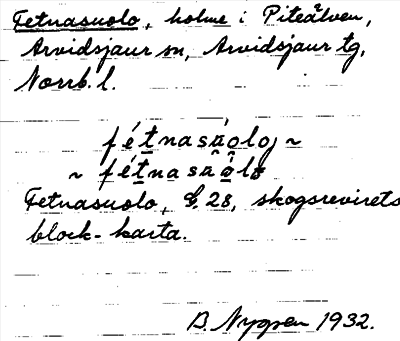 Fetnasuolo, holme i Piteälven,
Arvidsjaur sn, Arvidsjaur tg,
Norrb. l.
fétnasu̯ȯlo ~
~ fétnasu̯ólo
Fetnasuolo, G. 28, skogsrevirets
block-karta.
B. Nygren 1932.